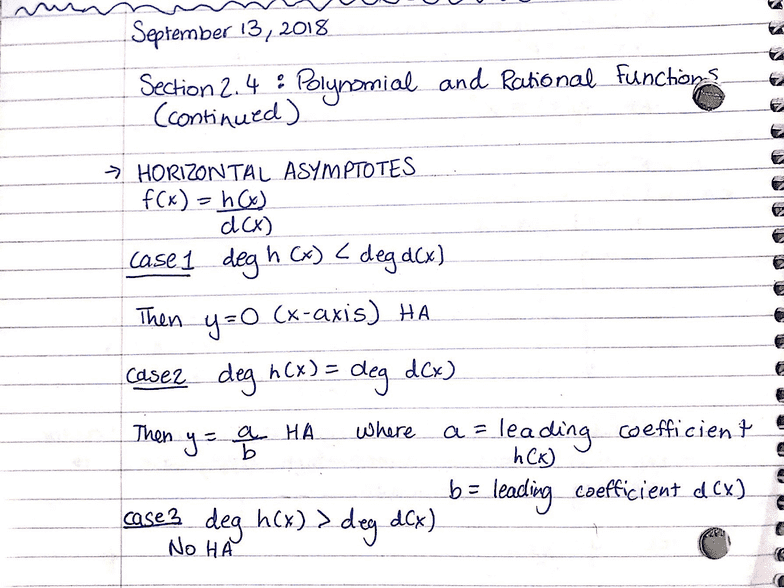 September 13, 2018
Section 2.4 : Polynomial and Rational Functions
(continued)
→ HORIZONTAL ASYMPTOTES
f(x) = h(x)
d(x)
case 1 deg h(x) < deg d(x)
Then y=0 (x-axis) HA
case 2 deg h(x) = deg d(x)
Then y = a/b HA where a = leading coefficient
h(x)
b = leading coefficient d(x)
case 3 deg h(x) > deg d(x)
No HA